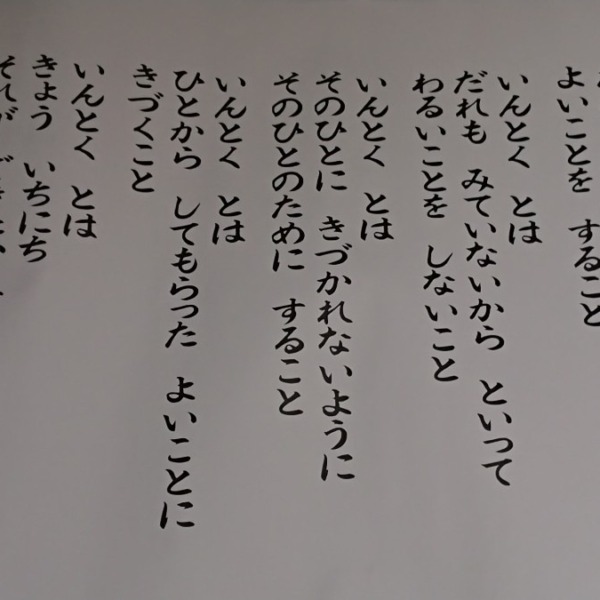 よいことを すること
いんとく とは
だれも みていないから といって
わるいことを しないこと
いんとく とは
そのひとに きづかれないように
そのひとのために すること
いんとく とは
ひとから してもらった よいことに
きづくこと
いんとく とは
きょう いちにち
それが